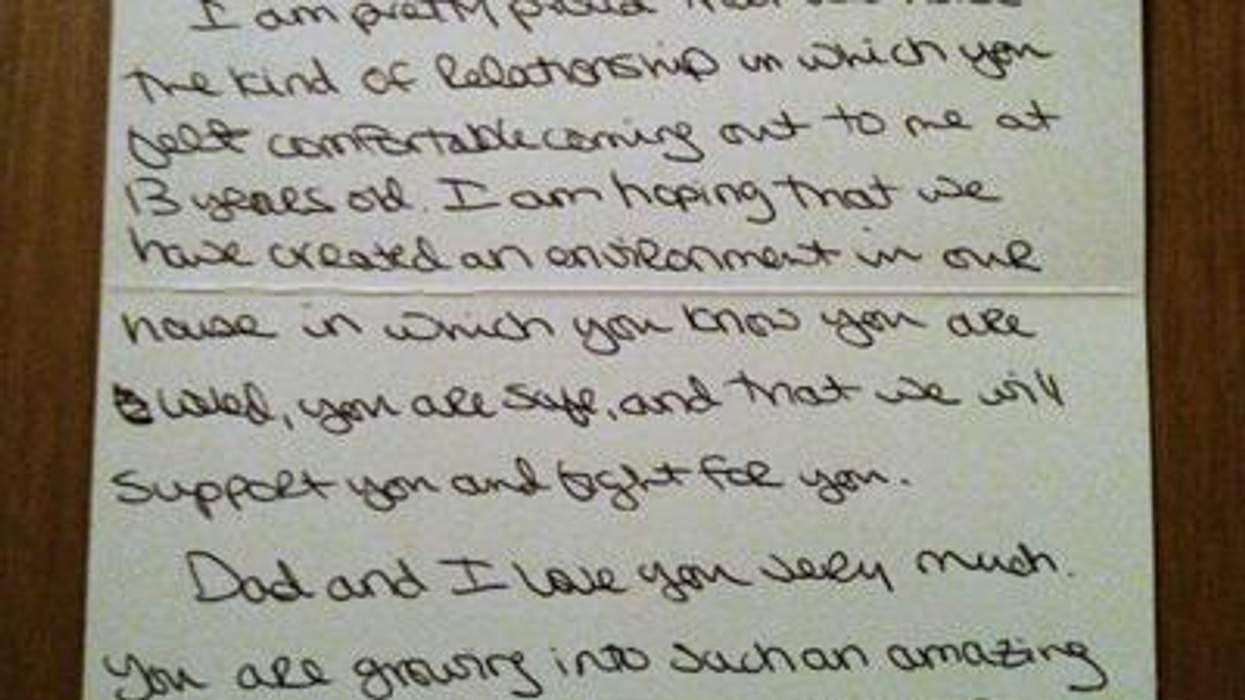 I am pretty proud that we have
the kind of relationship in which you
felt comfortable coming out to me at
13 years old. I am hoping that we
have created an environment in our
house in which you know you are
loved, you are safe, and that we will
support you and fight for you.
Dad and I love you very much.
You are growing into such an amazing